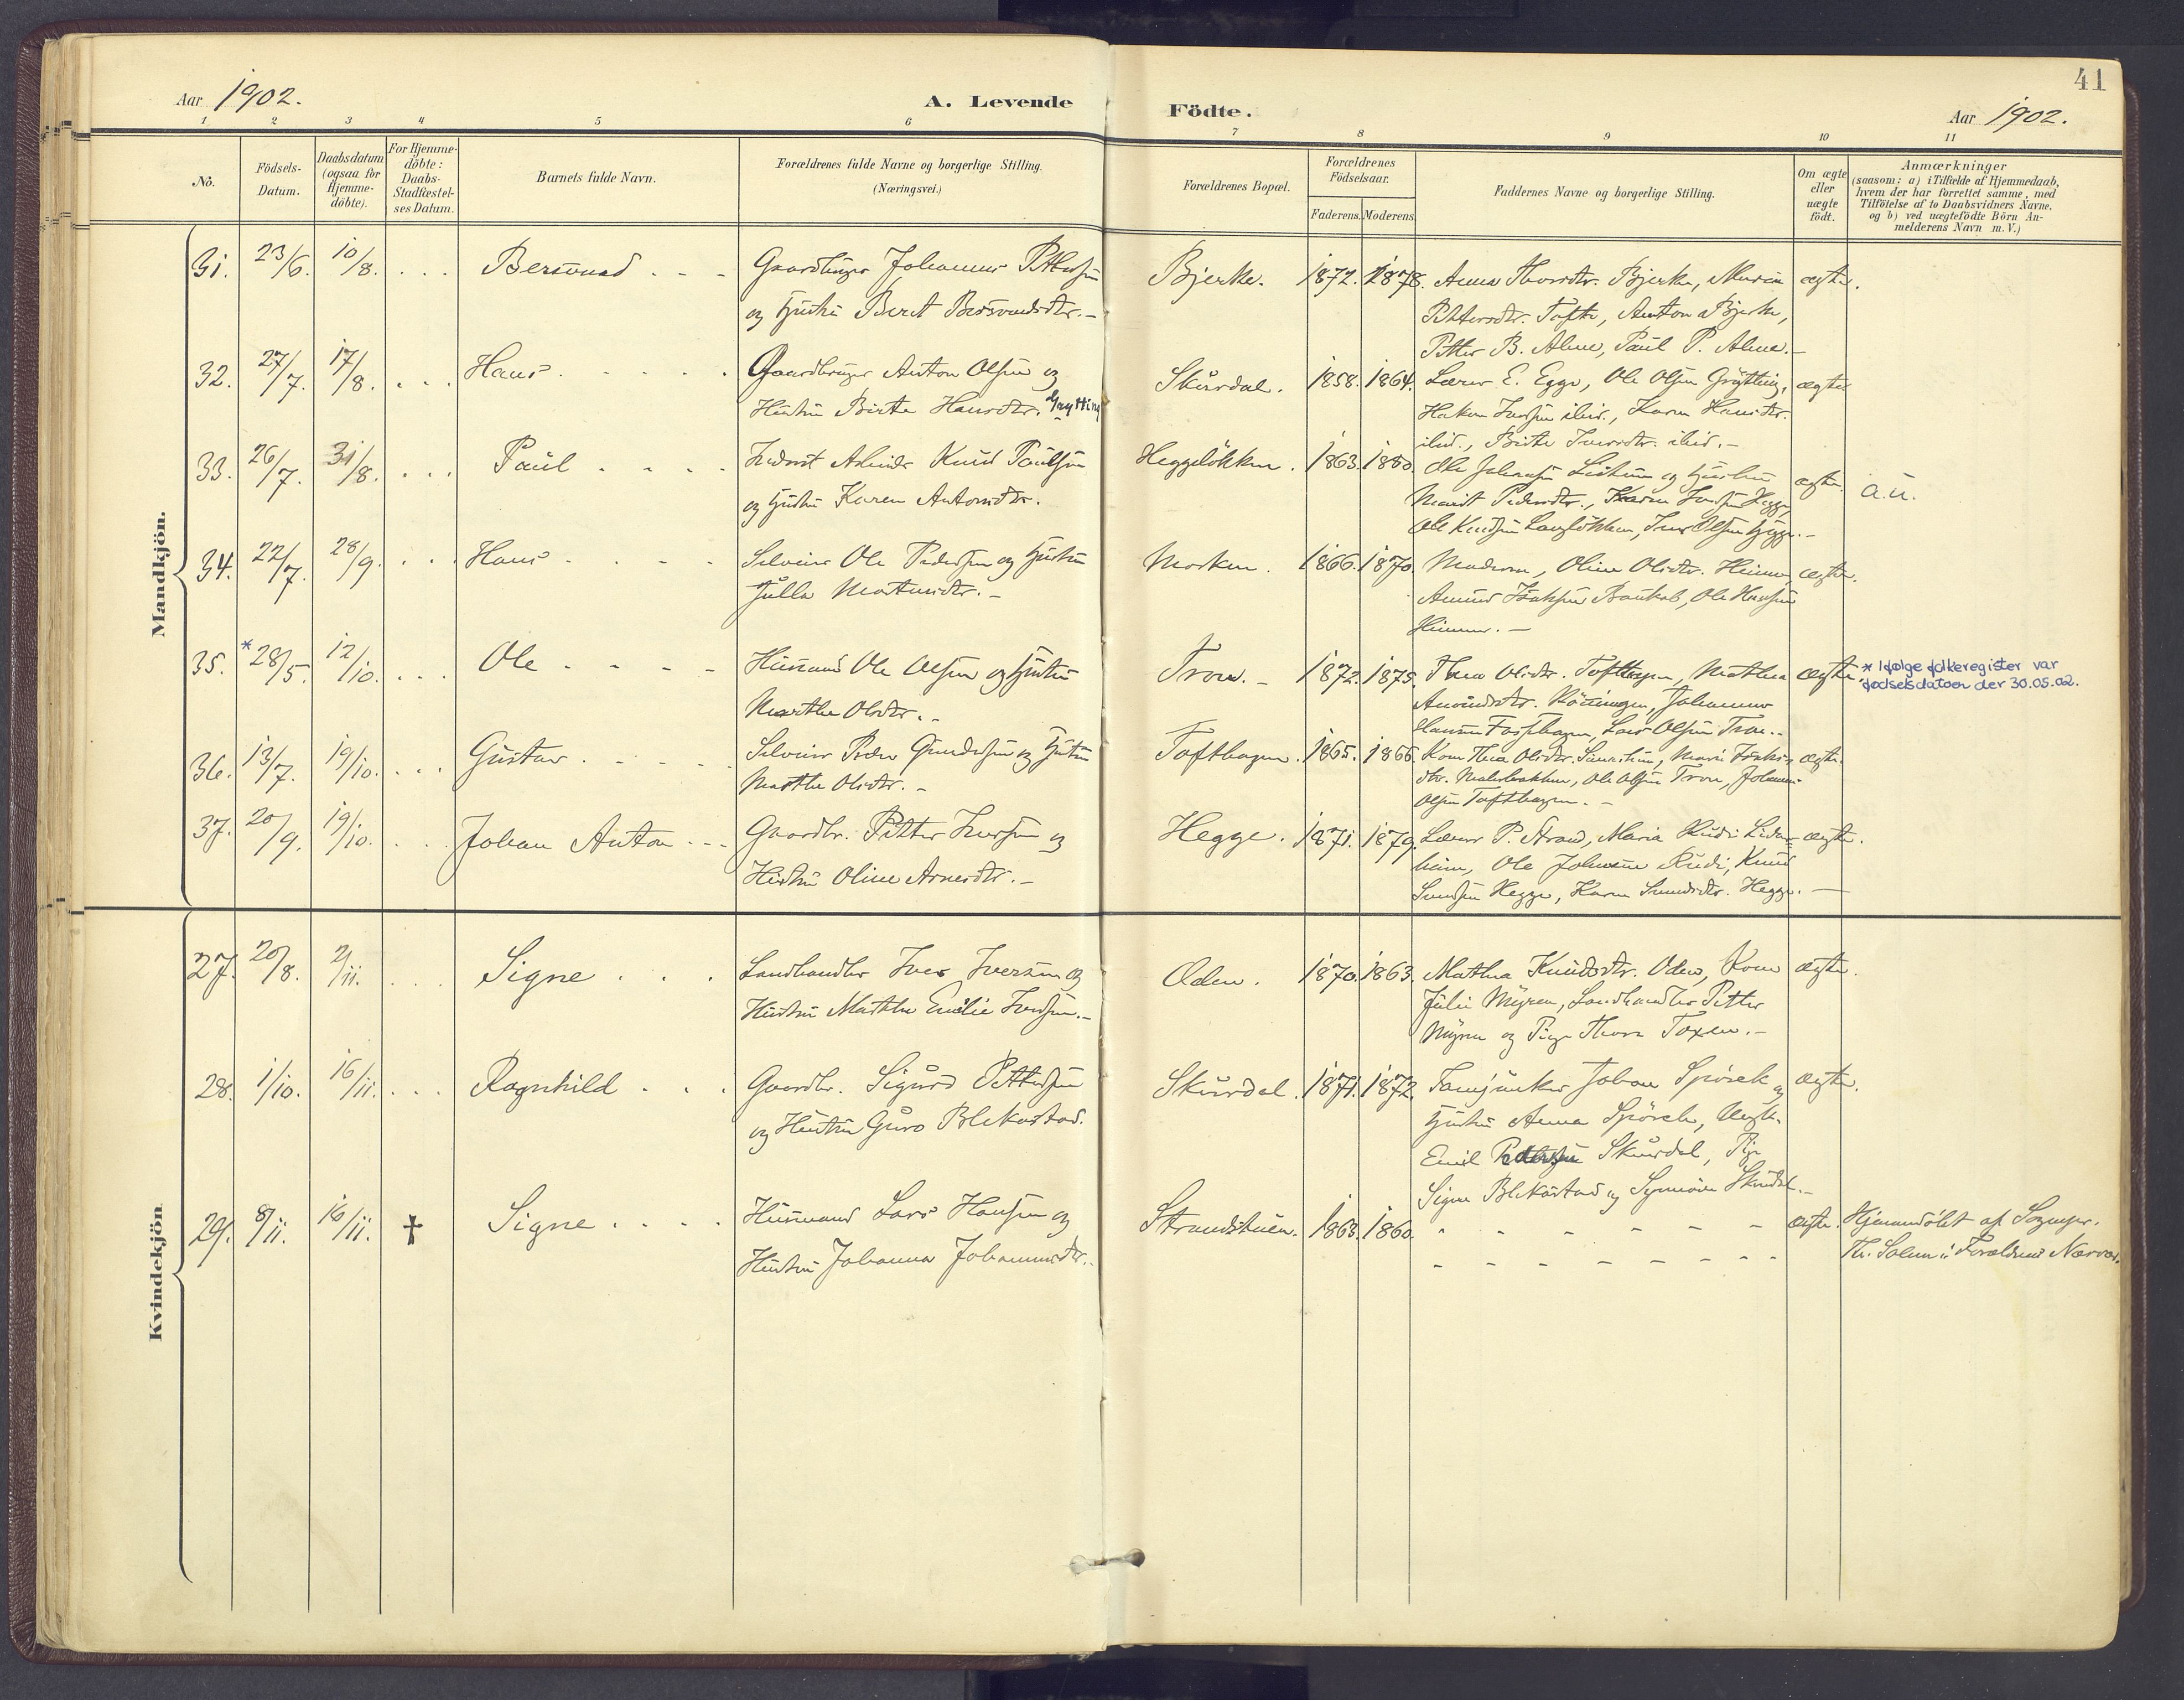 41
Aar 1902.
A. Levende
Födte.
Aar 1902.
1 2 3 4 5 6 7 8 9 10 11
No.
Födsels-
Datum.
Daabsdatum
(ogsaa for
Hjemme-
döbte).
For Hjemme-
döbte:
Daabs-
Stadfæstel-
ses Datum.
Barnets fulde Navn.
Forældrenes fulde Navne og borgerlige Stilling.
(Næringsvei.)
Forældrenes Bopæl.
Forældrenes
Födselsaar.
Faderens. Moderens.
Faddernes Navne og borgerlige Stilling.
Om ægte
eller
uægte
födt.
Anmærkninger
(saasom: a) i Tilfælde af Hjemmedaab,
hvem der har forrettet samme, med
Tilföielse af to Daabsvidners Navne,
og b) ved uægtefödte Börn An-
melderens Navn m. V.)
Mandkjön.
31. 23/6. 10/8. Bersvend Gaardbruger Johannes Pettersen
og Hustru Berit Bersvendsdtr.
Bjerke. 1872. 1878. Anna Thorsdtr. Bjerke, Maria
Pettersdtr. Tofte, Anton Bjerke,
Petter B. Alme, Paul P. Alme. ægte.
32. 27/7. 17/8. Hans Gaardbruger Anton Olsen og
Hustru Birte Hansdtr. Grytting
Skurdal. 1858. 1864. Lærer E. Egge, Ole Olsen Grytting,
Hakon Iversen ibid., Karen Hansdtr.
ibid., Birthe Iversdtr. ibid. ægte
33. 26/7. 31/8. Paul Knud Paulsen
og Hustru Karen Antonsdtr.
Heggelökken. 1863. 1880. Ole Johansen og Hustru
Marit Pedersdtr., Hegge,
Ole Knudsen, Iver Olsen Hegge. ægte. a.u.
34. 22/7. 28/9. Hans Selveier Ole Pedersen og Hustru
Julla
Morken. 1866. 1870. Moderen, Oline Olsdtr.
Ole Hansen ægte.
35. *28/5. 12/10. Ole Husmand Ole Olsen og Hustru
Marthe Olsdtr.
Tron. 1872. 1875. Thea Olsdtr. Tofthagen, Mathea
Amundsdtr. Johannes
Hansen Tofthagen, Lars Olsen Tron. ægte.
* Ifølge folkeregister var
fødselsdatoen der 30.05.02.
36. 13/7. 19/10. Gustav Selveier Peder Gundersen og Hustru
Marthe Olsdtr.
Tofthagen. 1865. 1866. Kone Thea Olsdtr.
Ole Olsen Tron, Johannes
Olsen Tofthagen. ægte.
37. 20/9. 19/10. Johan Anton Gaardbr. Petter Iversen og
Hustru Oline Arnesdtr.
Hegge. 1871. 1879. Lærer P. Strand, Maria Rudi
Ole Johansen Rudi, Knud
Hegge, Karen Hegge. ægte.
Kvindekjön
27. 20/8. 2/11. Signe Landhandler Iver Iversen og
Hustru Marthe Emilie Iversen.
Oden. 1870. 1863. Mathea Knudsdtr. Oden, Kone
Julie Myren, Landhandler Petter
Myren og Pige Thora Toxen. ægte.
28. 1/10. 16/11. Ragnhild Gaardbr. Sigurd Pettersen
og Hustru Guro Blekastad.
Skurdal. 1871. 1872. Johan Spörck og
Hustru Anna Spörck, Ungk.
Emil Skurdal, Pige
Signe Blekastad og Synnöve Skurdal. ægte.
29. 8/11. 16/11. † Signe Husmand Lars Hansen og
Hustru Johanna Johannesdtr.
Strandstuen. 1863. 1860. ægte. Hjemmedöbt af Sognepr.
Th. i Forældrenes Nærvær.